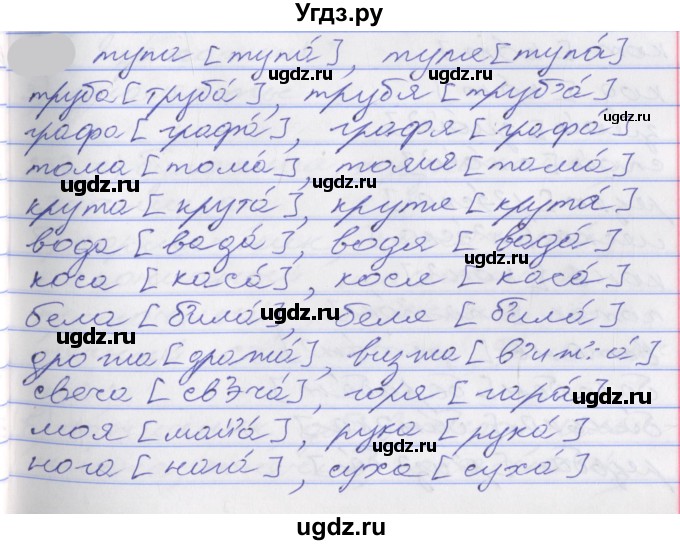 Угдз.ру
тупа [тупа́], тупя [тупа́]
ugdz.ru ugdz.ru
труба [труба́], трубя [труб'а́]
ugdz.ru
графа [графа́], графя [графа́]
ugdz.ru
тома [тома́], томя [тама́]
ugdz.ru ugdz.ru
крута [крута́], крутя [крута́]
вода [вада́], водя [вада́]
ugdz.ru ugdz.ru
коса [каса́], кося [каса́]
бела [б'ила́], беля [б'ила́]
ugdz.ru ugdz.ru
дрожа [дража́], визжа [в'иж:а́]
свеча [св'эча́], горя [гара́]
ugdz.ru ugdz.ru
моя [майа́], рука [рука́]
ugdz.ru
нога [нага́], суха [суха́]
ugdz.ru ugdz.ru
ugdz.ru